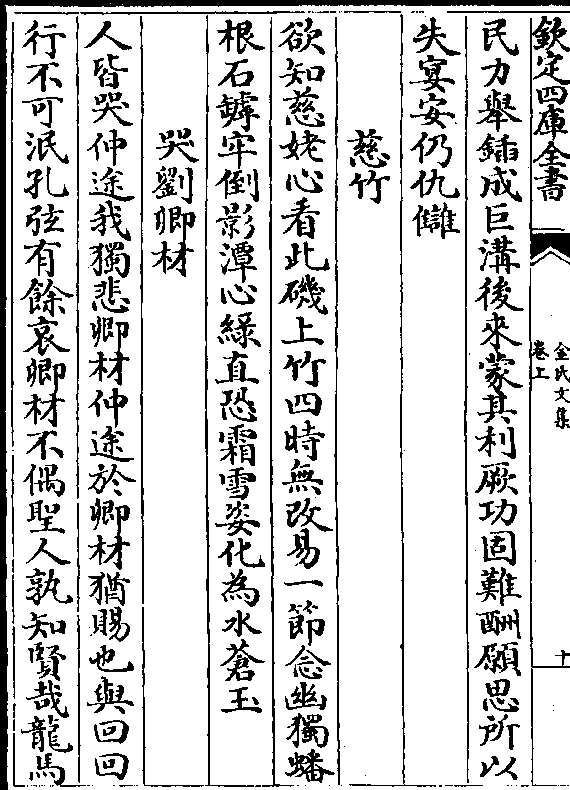 欽定四庫全書
金氏文集
卷上
十
民力舉鍤成巨溝後來蒙其利厥功固難酬願思所以
失宴安仍仇讎
慈竹
欲知慈姥心看此磯上竹四時無改易一節念幽獨蟠
根石罅牢倒影潭心綠直恐霜雪姿化為水蒼玉
哭劉卿材
人皆哭仲途我獨悲卿材仲途於卿材猶賜也與回回
行不可泯孔弦有餘哀卿材不偶聖人孰知賢哉龍馬